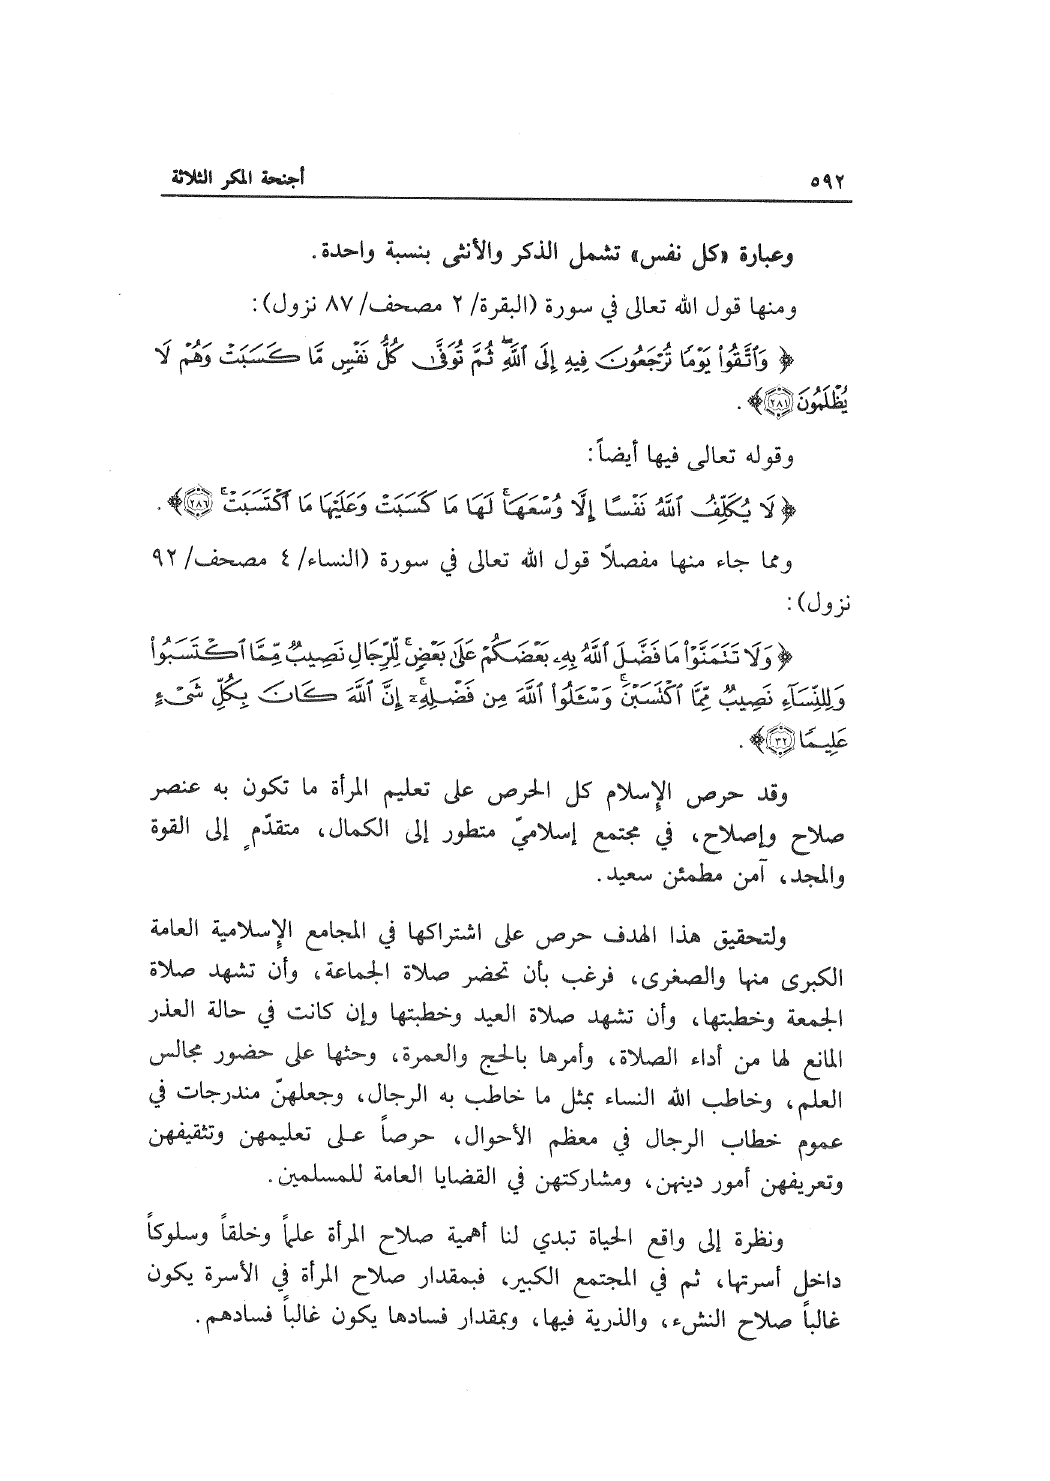 ٥٩٢ أجنحة المكر الثلاثة
وعبارة «كل نفس» تشمل الذكر والأنثى بنسبة واحدة.
ومنها قول الله تعالى في سورة (البقرة/ ٢ مصحف/ ٨٧ نزول):
﴿ وَٱتَّقُوا۟ يَوْمًا تُرْجَعُونَ فِيهِ إِلَى ٱللَّهِ ۖ ثُمَّ تُوَفَّىٰ كُلُّ نَفْسٍ مَّا كَسَبَتْ وَهُمْ لَا
يُظْلَمُونَ ﴿٢٨١﴾ ﴾ .
وقوله تعالى فيها أيضاً:
﴿ لَا يُكَلِّفُ ٱللَّهُ نَفْسًا إِلَّا وُسْعَهَا ۚ لَهَا مَا كَسَبَتْ وَعَلَيْهَا مَا ٱكْتَسَبَتْ ۚ ﴿٢٨٦﴾ ﴾ .
ومما جاء منها مفصلاً قول الله تعالى في سورة (النساء/ ٤ مصحف/ ٩٢
نزول):
﴿ وَلَا تَتَمَنَّوْا۟ مَا فَضَّلَ ٱللَّهُ بِهِۦ بَعْضَكُمْ عَلَىٰ بَعْضٍ ۚ لِّلرِّجَالِ نَصِيبٌ مِّمَّا ٱكْتَسَبُوا۟
وَلِلنِّسَآءِ نَصِيبٌ مِّمَّا ٱكْتَسَبْنَ ۚ وَسْـَٔلُوا۟ ٱللَّهَ مِن فَضْلِهِۦٓ ۚ إِنَّ ٱللَّهَ كَانَ بِكُلِّ شَىْءٍ
عَلِيمًا ﴿٣٢﴾ ﴾ .
وقد حرص الإسلام كل الحرص على تعليم المرأة ما تكون به عنصر
صلاح وإصلاح، في مجتمع إسلاميّ متطور إلى الكمال، متقدّمٍ إلى القوة
والمجد، آمن مطمئن سعيد.
ولتحقيق هذا الهدف حرص على اشتراكها في المجامع الإسلامية العامة
الكبرى منها والصغرى، فرغب بأن تحضر صلاة الجماعة، وأن تشهد صلاة
الجمعة وخطبتها، وأن تشهد صلاة العيد وخطبتها وإن كانت في حالة العذر
المانع لها من أداء الصلاة، وأمرها بالحج والعمرة، وحثها على حضور مجالس
العلم، وخاطب الله النساء بمثل ما خاطب به الرجال، وجعلهنّ مندرجات في
عموم خطاب الرجال في معظم الأحوال، حرصاً على تعليمهن وتثقيفهن
وتعريفهن أمور دينهن، ومشاركتهن في القضايا العامة للمسلمين.
ونظرة إلى واقع الحياة تبدي لنا أهمية صلاح المرأة علماً وخلقاً وسلوكاً
داخل أسرتها، ثم في المجتمع الكبير، فبمقدار صلاح المرأة في الأسرة يكون
غالباً صلاح النشء، والذرية فيها، وبمقدار فسادها يكون غالباً فسادهم.